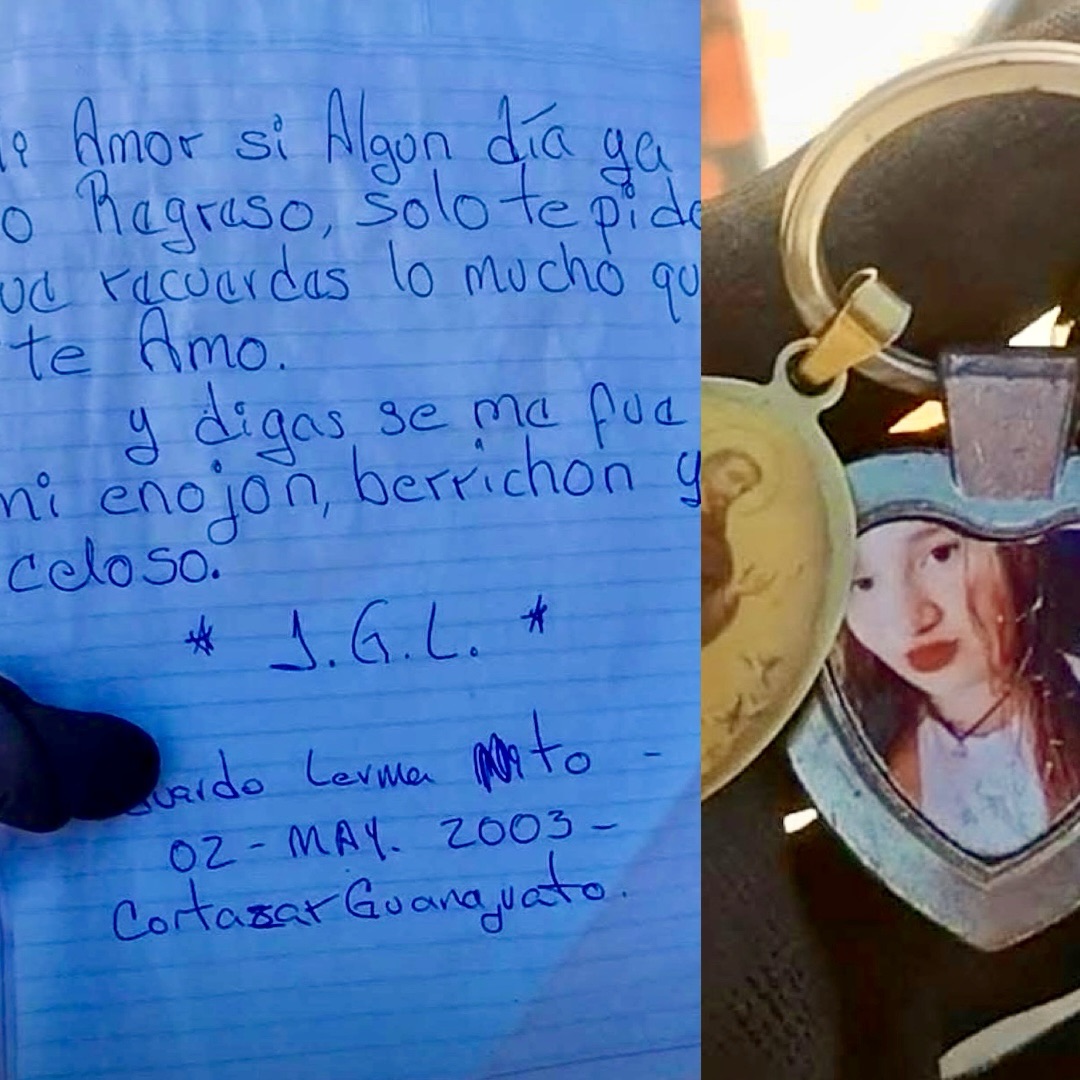 Mi Amor si Algun día ya
o Regreso, solo te pido
ue recuerdes lo mucho qu
te Amo.
y digas se me fue
mi enojon, berrichon y
celoso.
* J.G.L. *
uardo Lerma to -
02 - MAY. 2003 -
Cortazar Guanajuato.